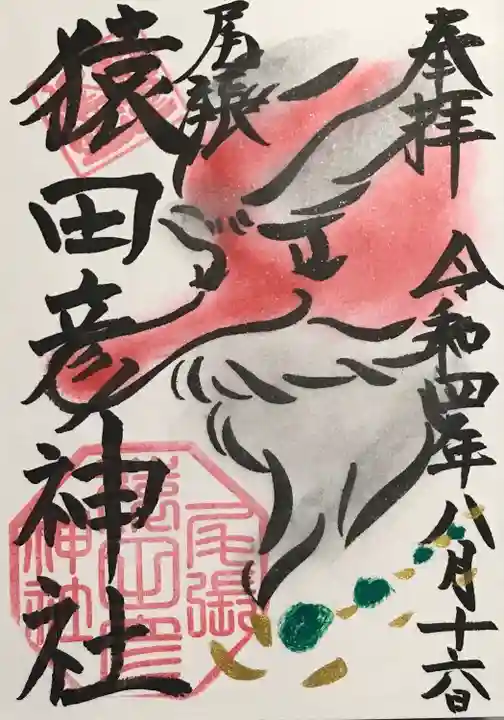 奉拝 令和四年八月十六日
尾張
猿田彦神社
尾張
猿田彦
神社